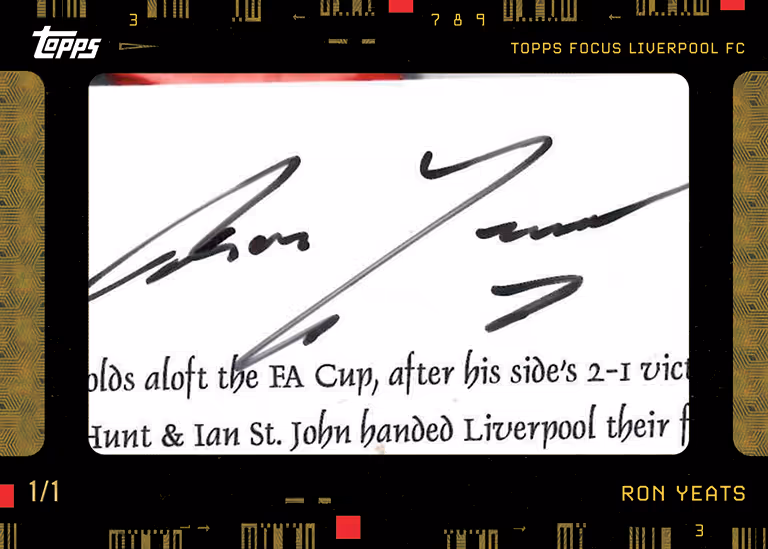 3
7 8 9
Topps
TOPPS FOCUS LIVERPOOL FC
olds aloft the FA Cup, after his side's 2-1 vict
Hunt & Ian St. John handed Liverpool their f
1/1
RON YEATS
3